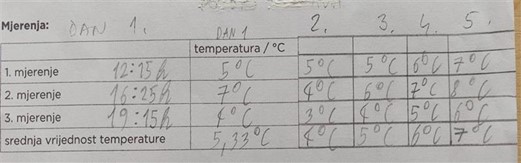 Mjerenja: DAN 1. DAN 1 2. 3. 4. 5.
temperatura / °C
1. mjerenje 12:15h 5°C 5°C 5°C 6°C 7°C
2. mjerenje 16:25h 7°C 4°C 6°C 7°C 8°C
3. mjerenje 19:15h 4°C 3°C 4°C 5°C 6°C
srednja vrijednost temperature 5,33°C 4°C 5°C 6°C 7°C